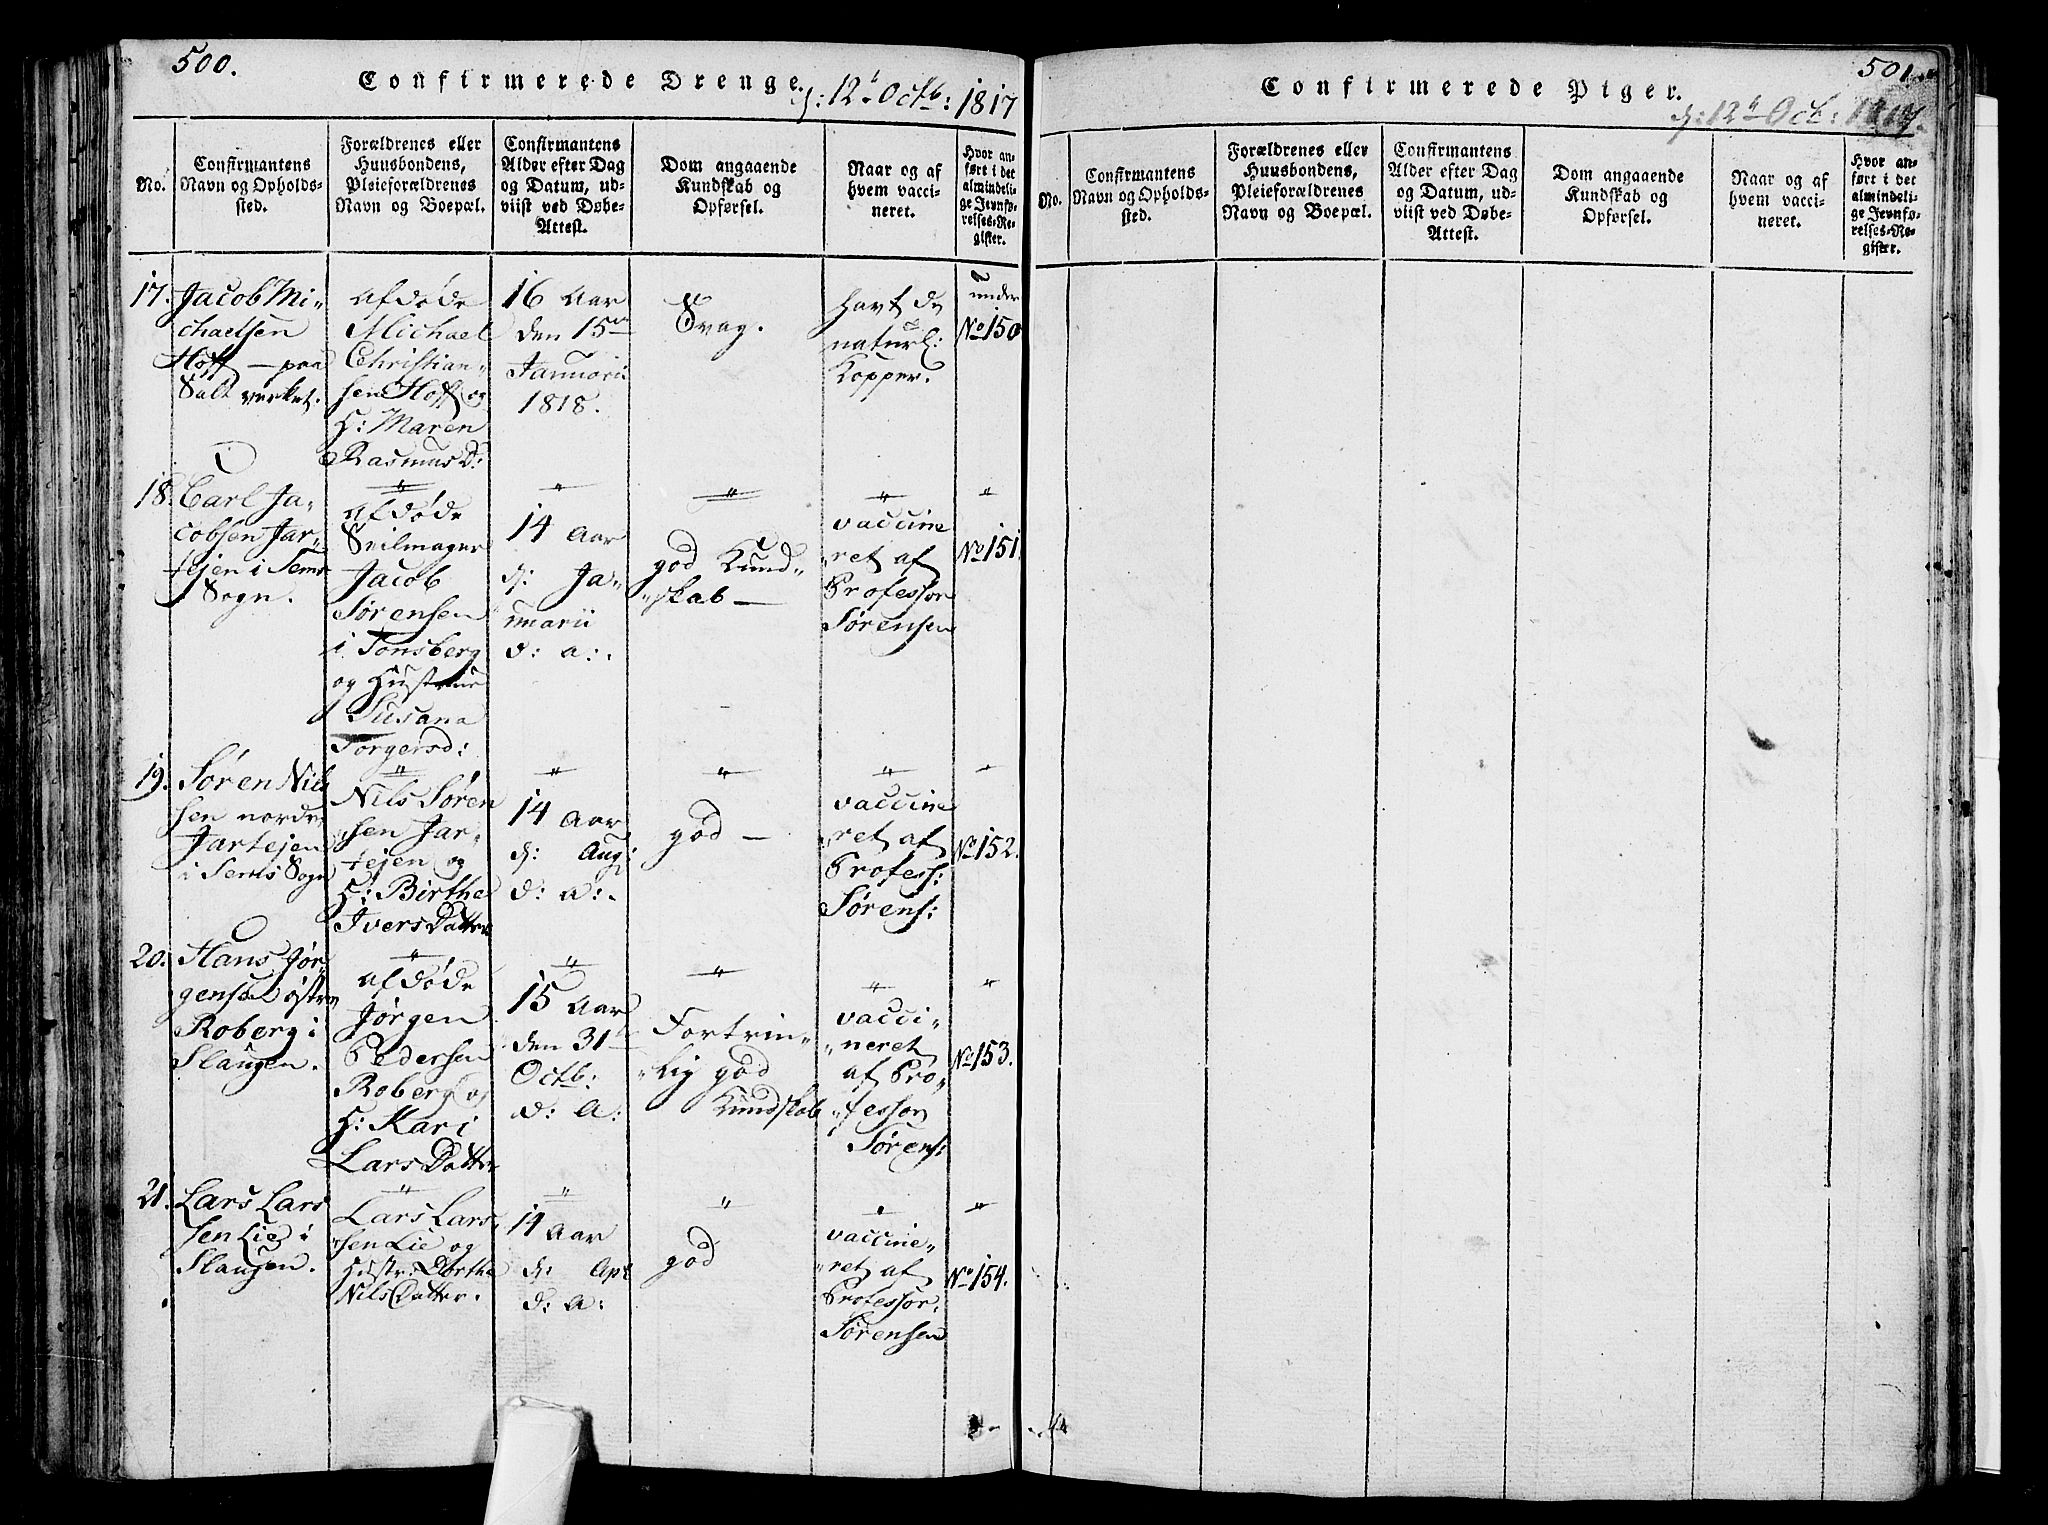 500.
Confirmerede Drenge. d: 12te Octb: 1817
No.
Confirmantens
Navn og Opholds-
sted.
Forældrenes eller
Huusbondens,
Pleieforældrenes
Navn og Boepæl.
Confirmantens
Alder efter Dag
og Datum, ud-
viist ved Døbe-
Attest.
Dom angaaende
Kundskab og
Opførsel.
Naar og af
hvem vacci-
neret.
Hvor an-
ført i det
almindeli-
ge Jevnfø-
relses-Re-
gister.
17.
Jacob Mi-
chaelsen
Hoff – paa
Saltverket.
afdøde
Michael
Christian-
sen Hoff og
H: Maren
Rasmus D:
16 Aar
den 15de
Januarii
1818.
Svag.
havt de
naturl:
Kopper.
under
No 150
18.
Carl Ja-
cobsen Jar-
tejen i Sems
Sogn.
"
afdøde
Seilmager
Jacob
Sørensen
i Tonsberg
og Hustrue
Susana
Torgersd:
"
14 Aar
d: Ja-
nuarii
d: a:.
"
god Kund-
"skab –
"
vaccine
"ret af
Professor
Sørensen
"
No 151.
19.
Søren Nils
sen nordr
Jartejen
i Sems Sogn
"
Nils Søren
sen Jar-
tejen og
H: Birthe
Ivers Datter
"
14 Aar
d: Aug:
d: a:.
"
god –
"
vaccine
"ret af
Profess:
Sørens:
"
No 152.
20.
Hans Jør-
gensen østre
Roberg i
Slaugen.
"
afdøde
Jørgen
Pedersen
Roberg og
H: Kari
Lars Datter
"
15 Aar
den 31te
Octb:
d: A:
"
Fortrin-
"lig god
Kundskab
"
vacci-
"neret
af Pro-
"fessor
Sørens:
"
No 153.
21.
Lars Lars
sen Lie i
Slaugen.
"
Lars Lars
sen Lie og
Hustr: Dorthe
Nils Datter.
"
14 Aar
d: Apr
d: A:
"
god
"
vaccine-
"ret af
Professor
Sørensen
"
No 154.
501.
Confirmerede Piger.
d: 12te Octb: 1817.
No.
Confirmantens
Navn og Opholds-
sted.
Forældrenes eller
Huusbondens,
Pleieforældrenes
Navn og Boepæl.
Confirmantens
Alder efter Dag
og Datum, ud-
viist ved Døbe-
Attest.
Dom angaaende
Kundskab og
Opførsel.
Naar og af
hvem vacci-
neret.
Hvor an-
ført i det
almindeli-
ge Jevnfø-
relses-Re-
gister.